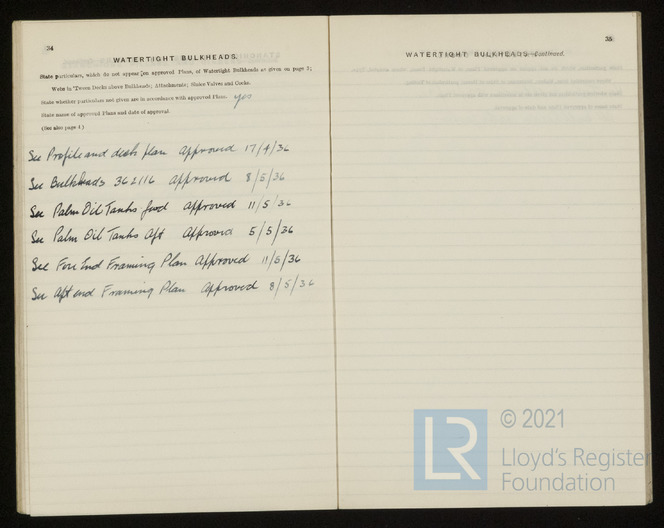 34
WATERTIGHT BULKHEADS.
State particulars, which do not appear on approved Plans, of Watertight Bulkheads as given on page 3;
Webs in 'Tween Decks above Bulkheads; Attachments; Sluice Valves and Cocks.
State whether particulars and given are in accordance with approved Plans. yes
State name of approved Plans and date of approval.
(See also page 4)
See Profile and deck plan Approved 17/4/36
See Bulkheads 362116 Approved 8/5/36
See Palm Oil Tanks fwd Approved 11/5/36
See Palm Oil Tanks Aft Approved 5/5/36
See Fore End Framing Plan Approved 11/5/36
See Aft end Framing Plan Approved 8/5/36
35
WATERTIGHT BULKHEADS—Continued.
LR
© 2021
Lloyd's Register
Foundation